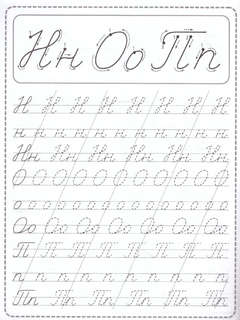 Нн Оо Пп
Н Н Н Н Н Н Н Н
н н н н н н н н н н н
Нн Нн Нн Нн Нн Нн
О О О О О О О О О О О О
о о о о о о о о о о о о
Оо Оо Оо Оо Оо Оо Оо
П П П П П П П П
п п п п п п п п п п п
Пп Пп Пп Пп Пп Пп